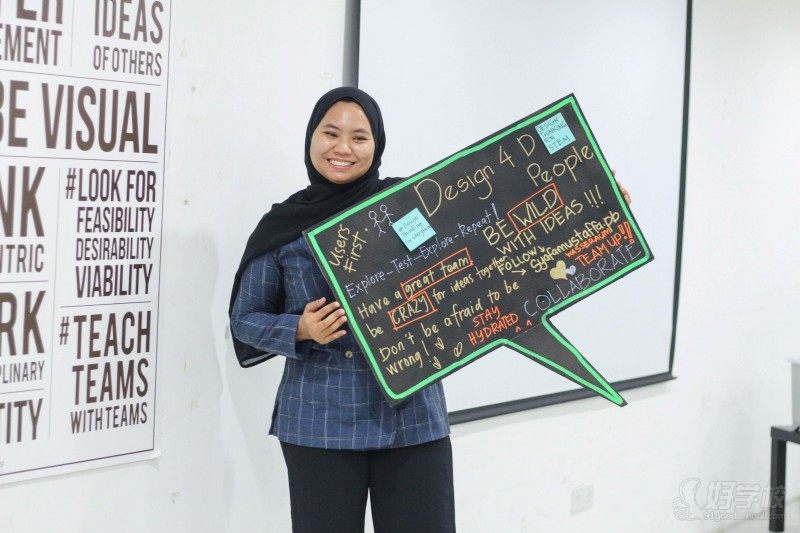 IDEAS
OF OTHERS
EMENT
BE VISUAL
#LOOK FOR
FEASIBILITY
DESIRABILITY
VIABILITY
NK
NTRIC
#TEACH
TEAMS
WITH TEAMS
RK
PLINARY
TITY
Design 4 D
People
DESIGN
THINKING
FOR
STEM
Users
First.
# Design
Thinking
Explore-Test-Explore-Repeat!
BE WILD
WITH IDEAS !!!
Have a great team.
be CRAZY for ideas together
FOLLOW
syafamustaffa.pb
WASSERAUMI
TEAM UP!!
Don't be afraid to be
wrong!
STAY
HYDRATED
COLLABORATE
好学校
91goodschool.com